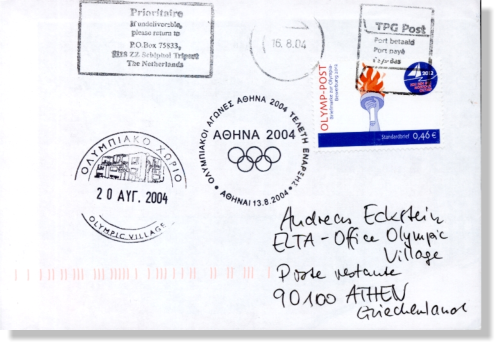 Prioritaire
If undeliverable,
please return to
P.O.Box 75833,
1118 ZZ Schiphol Triport
The Netherlands
16.8.04
TPG Post
Port betaald
Port payé
Pays-Bas
OLYMP-POST
2012
Standardbrief 0,46 €
ΟΛΥΜΠΙΑΚΟΙ ΑΓΩΝΕΣ ΑΘΗΝΑ 2004 ΤΕΛΕΤΗ ΕΝΑΡΞΗΣ
ΑΘΗΝΑ 2004
• ΑΘΗΝΑΙ 13.8.2004 •
ΟΛΥΜΠΙΑΚΟ ΧΩΡΙΟ
20 ΑΥΓ. 2004
OLYMPIC VILLAGE
Andreas Eckstein
ELTA - Office Olympic
Village
Poste restante
90100 ATHEN
Griechenland